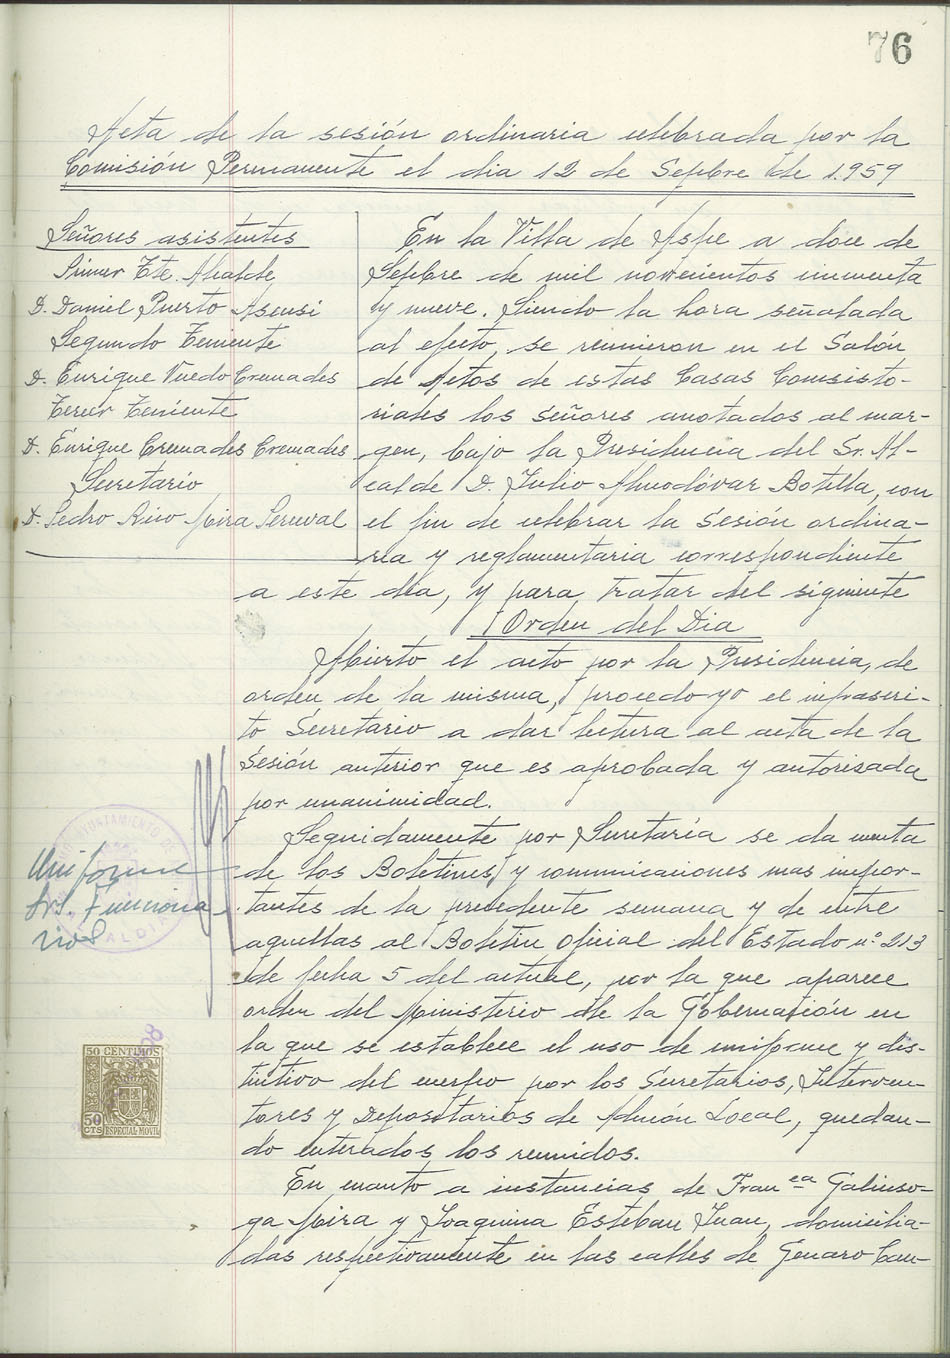 76
Acta de la sesión ordinaria celebrada por la
Comisión Permanente el dia 12 de Sepbre de 1.959
Señores asistentes
Primer Tte. Alcalde
D. Daniel Puerto Asensi
Segundo Teniente
D. Enrique Vuedo Cremades
Tercer Teniente
D. Enrique Cremades Cremades
Secretario
D. Pedro Rico Mira Perceval
En la Villa de Aspe a doce de
Sepbre de mil novecientos cincuenta
y nueve. Siendo la hora señalada
al efecto, se reunieron en el Salón
de Actos de estas Casas Consisto-
riales los señores anotados al mar-
gen, bajo la Presidencia del Sr. Al-
calde D. Julio Almodóvar Botella, con
el fin de celebrar la sesión ordina-
ria y reglamentaria correspondiente
a este día, y para tratar del siguiente
Orden del Dia
Abierto el acto por la Presidencia, de
orden de la misma, procedo yo el infrascri-
to Secretario a dar lectura al acta de la
sesión anterior que es aprobada y autorizada
por unanimidad.
Seguidamente por Secretaría se da cuenta
de los Boletines y comunicaciones mas impor-
tantes de la precedente semana y de entre
aquellas al Boletin Oficial del Estado nº 213
de fecha 5 del actual, por la que aparece
orden del Ministerio de la Gobernación en
la que se establece el uso de uniforme y dis-
tintivo del cuerpo por los Secretarios, Interven-
tores y Depositarios de Admón Local, quedan-
do enterados los reunidos.
En cuanto a instancias de Fran ca Galinso-
ga Mira y Joaquina Esteban Juan, domicilia-
das respectivamente en las calles de Genaro Can-
Uniforme
Funciona
rios
AYUNTAMIENTO DE
ALCALDIA
50 CENTIMOS
50
CTS
ESPECIAL MOVIL